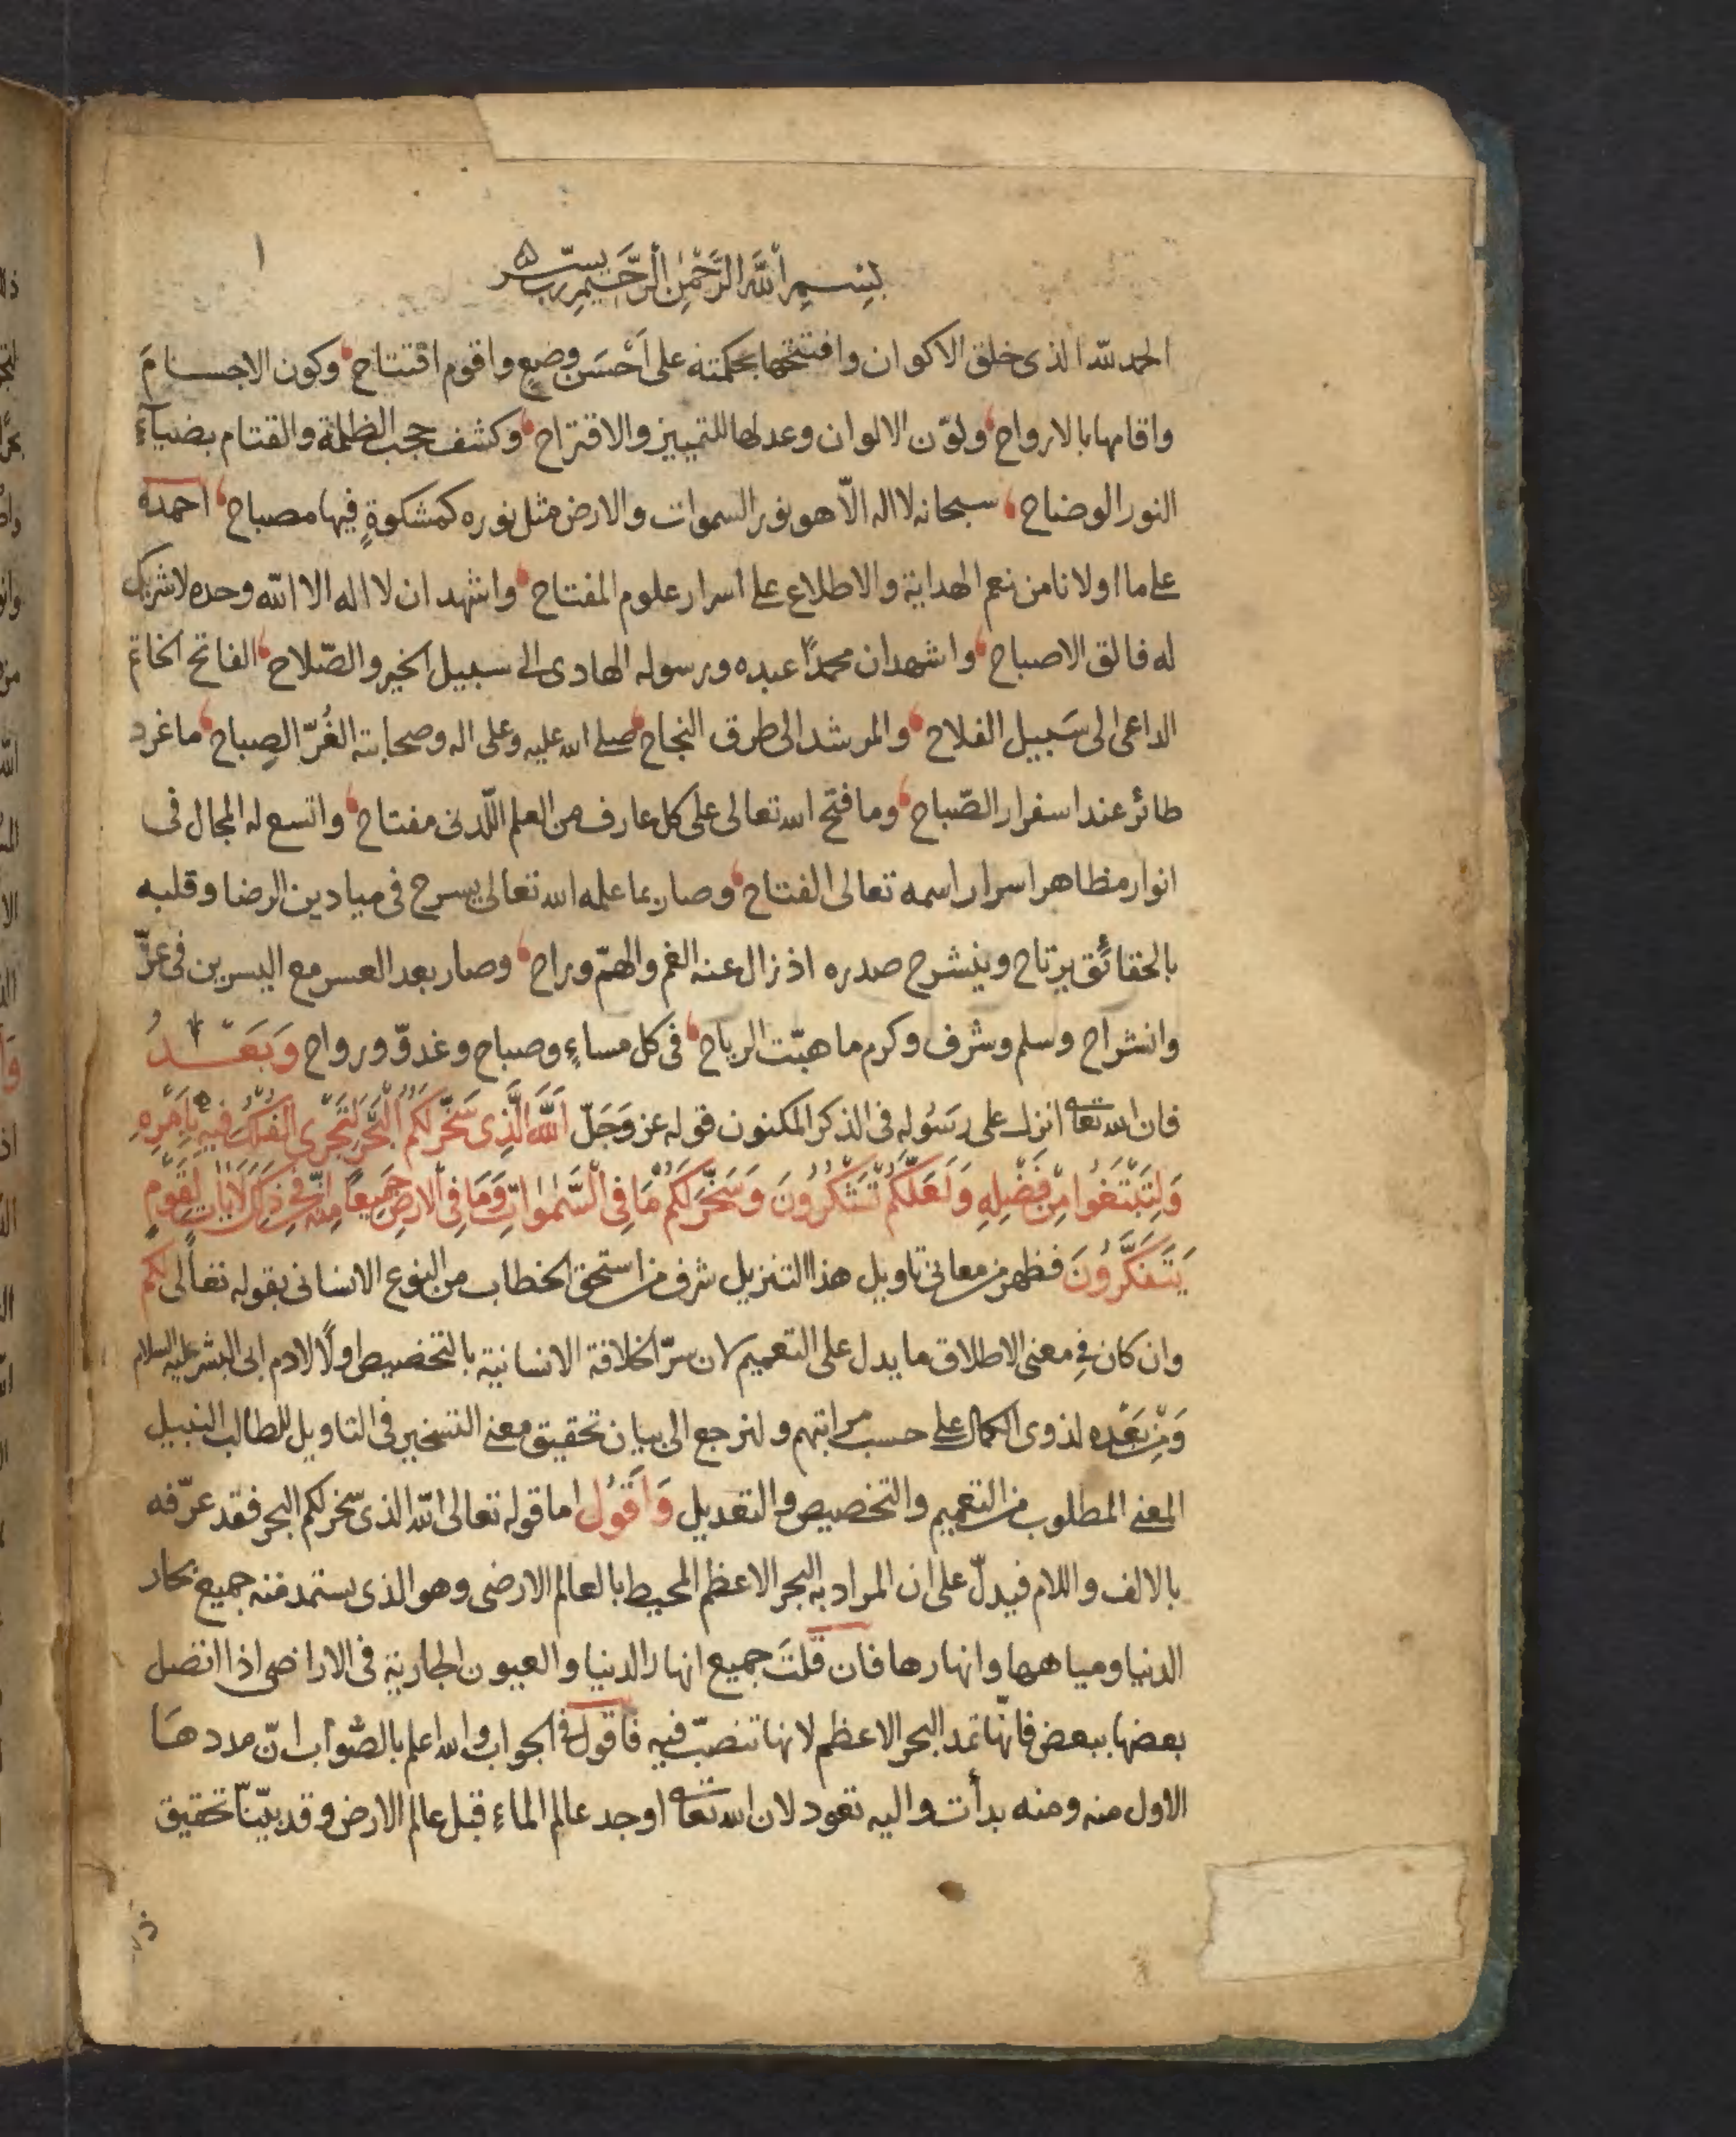 ١
بِسْمِ اللَّهِ الرَّحْمٰنِ الرَّحِيمِ رب يسّر
الحمد لله الذى خلق الاكوان وافتتحها بحكمته على اَحْسَن وضعٍ واقوم افتتاح وكون الاجسامَ
واقامها بالارواح ولوّن الالوان وعدلها للتمييز والاقتراح وكشف حجب الظلمة والقتام بضيآء
النور الوضاح سبحانه لا اله الّا هو نور السموات والارض مثل نوره كمشكوةٍ فيها مصباح احمده
على ما اولانا من نعم الهداية والاطلاع على اسرار علوم المفتاح واشهد ان لا اله الا الله وحده لا شريك
له فالق الاصباح واشهد ان محمدًا عبده ورسوله الهادى الى سبيل الخير والصّلاح الفاتح الخاتم
الداعى الى سَبيل الفلاح والمرشد الى طرق النجاح صلى الله عليه وعلى اله وصحابته الغُرّ الصِباح ما غرد
طائر عند اسفرار الصّباح وما فتح الله تعالى على كل عارف من العلم اللّدنى مفتاح واتسع له المجال فى
انوار مظاهر اسرار اسمه تعالى الفتاح وصار بما علمه الله تعالى يسرح فى ميادين الرضا وقلبه
بالحقائق يرتاح وينشرح صدره اذ زال عنه الغم والهمّ وراح وصار بعد العسر مع اليسرين فى عزّ
وانشراح وسلم وشرف وكرم ما هبّت الرياح فى كل مساءٍ وصباح وغدوّ ورواح وَبَعْدُ
فان الله تعا انزل على رسُوله فى الذكر المكنون قوله عز وَجَلّ اَللَّهُ الَّذِى سَخَّرَ لَكُمُ الْبَحْرَ لِتَجْرِىَ الْفُلْكُ فِيهِ بِاَمْرِهِ
وَلِتَبْتَغُوا مِنْ فَضْلِهِ وَلَعَلَّكُمْ تَشْكُرُونَ وَسَخَّرَ لَكُمْ مَا فِى السَّمٰوَاتِ وَمَا فِى الْاَرْضِ جَمِيعًا مِنْهُ اِنَّ فِى ذٰلِكَ لَاٰيَاتٍ لِقَوْمٍ
يَتَفَكَّرُونَ فظهر من معانى تاويل هذا التنزيل شرف من استحق الخطاب من النوع الانسانى بقوله تعالى لكم
وان كان فى معنى الاطلاق ما يدل على التعميم لان سرّ الخلافة الانسانية بالتخصيص اولًا لادم ابى البشر عليه السلام
وَمِنْ بَعْدِه لذوى الكمال على حسب مراتبهم ولنرجع الى بيان تحقيق معنى التسخير فى التاويل للطالب النبيل
المعنى المطلوب من التعميم والتخصيص والتعديل وَاَقُول اما قوله تعالى الله الذى سخر لكم البحر فقد عرّفه
بالالف واللام فيدلّ على ان المراد به البحر الاعظم المحيط بالعالم الارضى وهو الذى يستمد منه جميع بحار
الدنيا ومياهها وانهارها فان قلتَ جميع انهار الدنيا والعيون الجارية فى الاراضى اذا اتصل
بعضها ببعض فانّها تمد البحر الاعظم لانها تنصبّ فيه فاقول فى الجواب والله اعلم بالصّواب انّ مددها
الاول منه ومنه بدأت واليه تعود لان الله تعا اوجد عالم الماء قبل عالم الارض وقد بيّنّا تحقيق